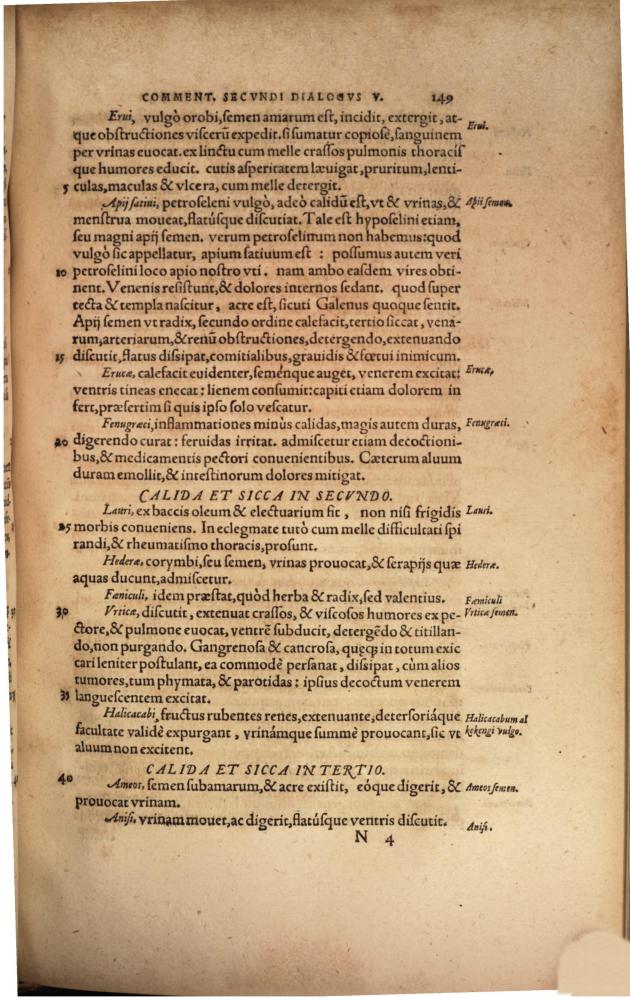 COMMENT. SECVNDI DIALOGVS V. 149
Erui, vulgò orobi, semen amarum est, incidit, extergit, at-
que obstructiones viscerū expedit. si sumatur copiosè, sanguinem
Erui.
per vrinas euocat. ex linctu cum melle crassos pulmonis thoracis
que humores educit. cutis asperitatem læuigat, pruritum, lenti-
5 culas, maculas & vlcera, cum melle detergit.
Apij satiui, petroseleni vulgò, adeò calidū est, vt & vrinas, & Apii semen.
menstrua moueat, flatúsque discutiat. Tale est hyposelini etiam,
seu magni apij semen. verum petroselinum non habemus: quod
vulgò sic appellatur, apium satiuum est : possumus autem veri
10 petroselini loco apio nostro vti. nam ambo easdem vires obti-
nent. Venenis resistunt, & dolores internos sedant. quod super
tecta & templa nascitur, acre est, sicuti Galenus quoque sentit.
Apij semen vt radix, secundo ordine calefacit, tertio siccat, vena-
rum, arteriarum, & renū obstructiones, detergendo, extenuando
15 discutit, flatus dissipat, comitialibus, grauidis & fœtui inimicum.
Erucæ, calefacit euidenter, seménque auget, venerem excitat: Erucæ,
ventris tineas enecat : lienem consumit: capiti etiam dolorem in
fert, præsertim si quis ipso solo vescatur.
Fenugræci, inflammationes minùs calidas, magis autem duras, Fenugræci.
20 digerendo curat : feruidas irritat. admiscetur etiam decoctioni-
bus, & medicamentis pectori conuenientibus. Cæterum aluum
duram emollit, & intestinorum dolores mitigat.
CALIDA ET SICCA IN SECVNDO.
Lauri, ex baccis oleum & electuarium fit, non nisi frigidis Lauri.
25 morbis conueniens. In eclegmate tutò cum melle difficultati spi
randi, & rheumatismo thoracis, prosunt.
Hederæ, corymbi, seu semen, vrinas prouocat, & serapijs quæ Hederæ.
aquas ducunt, admiscetur.
Fæniculi, idem præstat, quòd herba & radix, sed valentius. Fæniculi
30 Vrticæ, discutit, extenuat crassos, & viscosos humores ex pe- Vrticæ semen.
ctore, & pulmone euocat, ventrē subducit, detergēdo & titillan-
do, non purgando. Gangrenosa & cancrosa, quęq; in totum exic
cari leniter postulant, ea commodè persanat, dissipat, cùm alios
tumores, tum phymata, & parotidas : ipsius decoctum venerem
35 languescentem excitat.
Halicacabi, fructus rubentes renes, extenuante, detersoriáque Halicacabum al
facultate validè expurgant, vrinámque summè prouocant, sic vt kekengi vulgo.
aluum non excitent.
CALIDA ET SICCA IN TERTIO.
40 Ameos, semen subamarum, & acre existit, eóque digerit, & Ameos semen.
prouocat vrinam.
Anisi, vrinam mouet, ac digerit, flatúsque ventris discutit. Anisi.
N 4